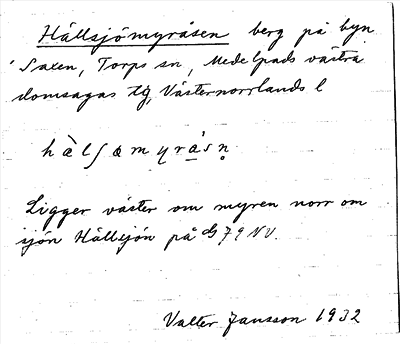 Hällsjömyråsen berg på byn
Saxen, Torps sn, Medelpads västra
domsagas tg, Västernorrlands l
hàlʃæmyrásn̥
Ligger väster om myren norr om
sjön Hällsjön på d 79 NV.
Valter Jansson 1932